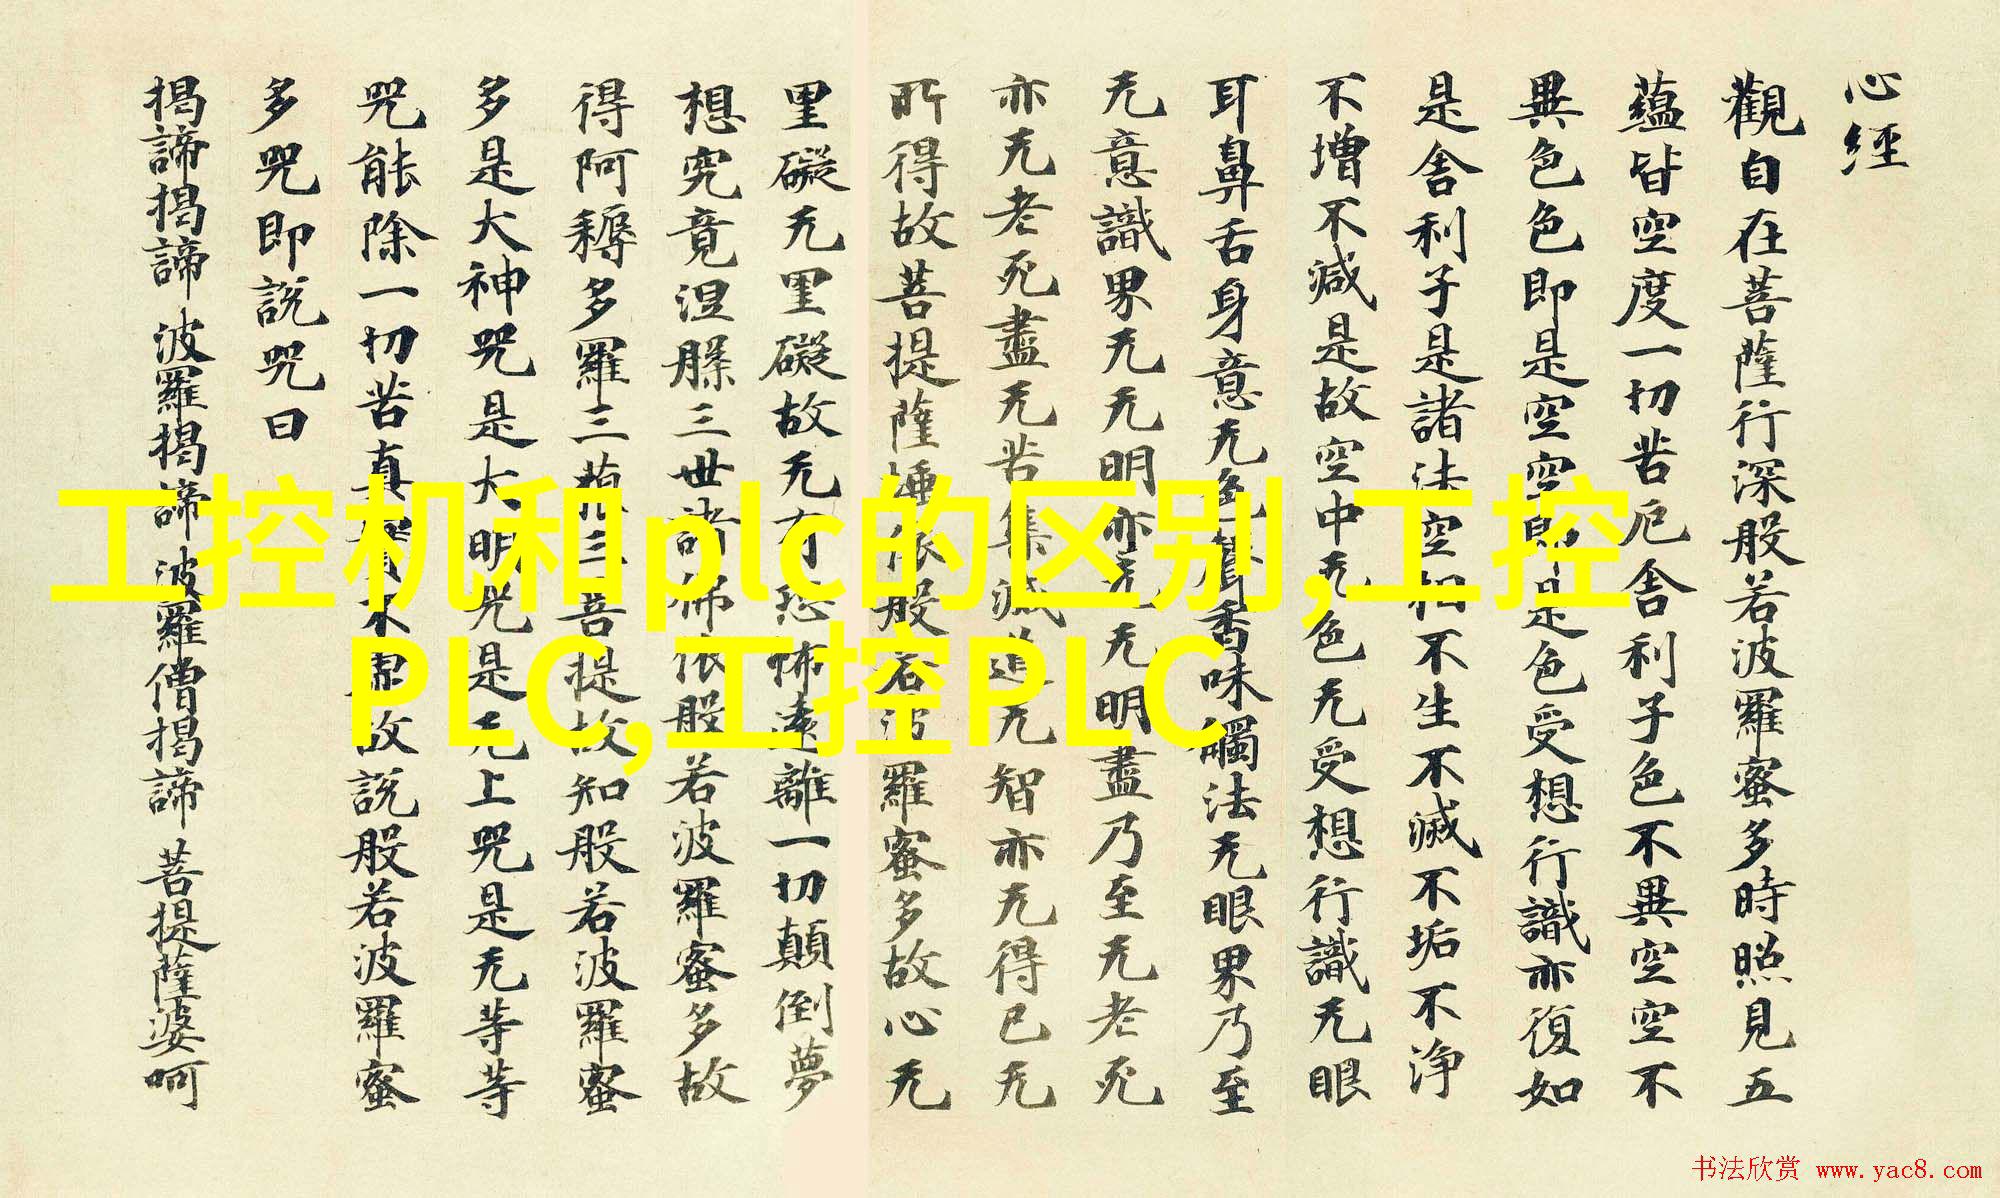 心經
觀自在菩薩行深般若波羅蜜多時照見五
蘊皆空度一切苦厄舎利子色不異空空不
異色色即是空空即是色受想行識亦復如
是舎利子是諸法空相不生不滅不垢不浄
不增不減是故空中无色无受想行識无眼
耳鼻舌身意无色聲香味觸法无眼界乃至
无意識界无无明亦无无明盡乃至无老死
亦无老死盡无苦集滅道无智亦无得已无
所得故菩提薩埵依般若波羅蜜多故心无
罣礙无罣礙故无有恐怖遠離一切顛倒夢
想究竟涅槃三世諸佛依般若波羅蜜多故
得阿耨多羅三藐三菩提故知般若波羅蜜
多是大神咒是大明咒是无上咒是无等等
咒能除一切苦真實不虛故説般若波羅蜜
多咒即説咒曰
揭諦揭諦 波羅揭諦 波羅僧揭諦 菩提薩婆呵
工控机和plc的区别,工控
PLC,工控PLC
书法欣赏 www.yac8.com